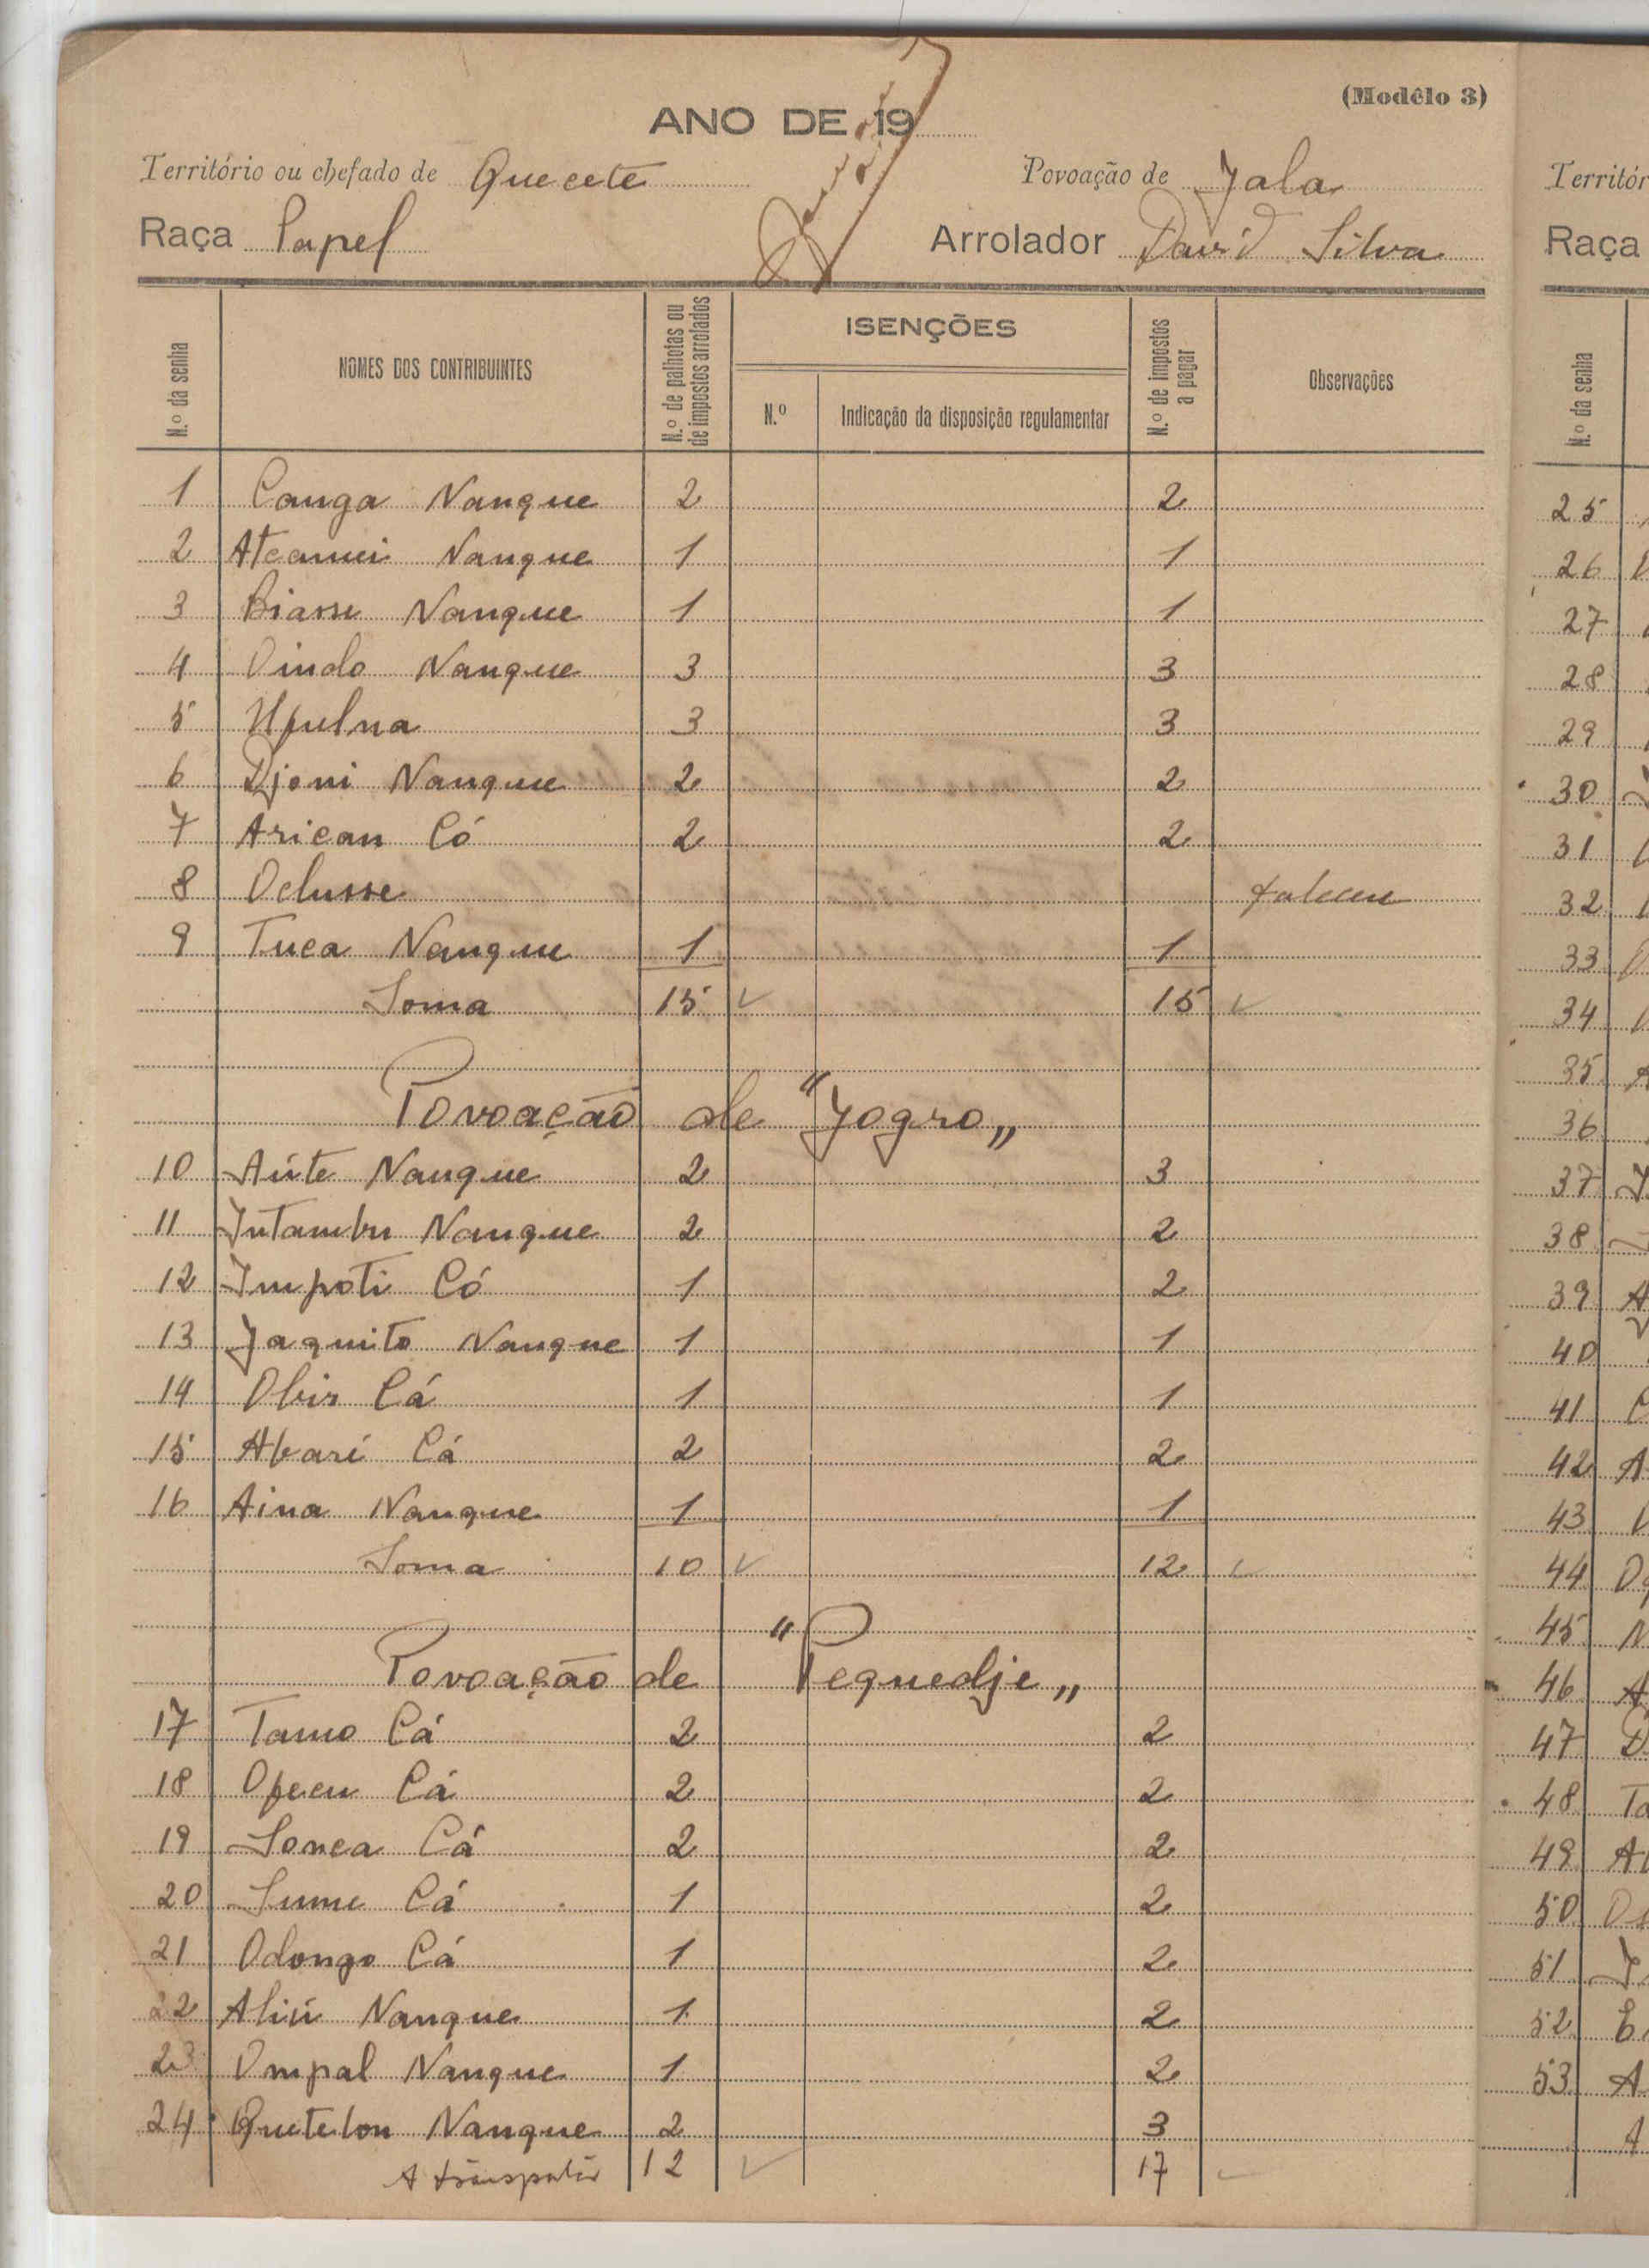 (Modêlo 3)
ANO DE 19
Território ou chefado de Quecete Povoação de Jala
Raça Papel Arrolador David Silva
N.º da senha NOMES DOS CONTRIBUINTES N.º de palhotas ou de impostos arrolados ISENÇÕES N.º Indicação da disposição regulamentar N.º de impostos a pagar Observações
1 Canga Nanque 2 2
2 Atcamei Nanque 1 1
3 Biasse Nanque 1 1
4 Oindo Nanque 3 3
5 Upulna 3 3
6 Djoni Nanque 2 2
7 Arican Có 2 2
8 Oclusse faleceu
9 Tuca Nanque 1 1
Soma 15 15
Povoação de "Jogro„
10 Aúte Nanque 2 3
11 Intambu Nanque 2 2
12 Impoti Có 1 2
13 Jaquito Nanque 1 1
14 Obis Cá 1 1
15 Abari Cá 2 2
16 Aina Nanque 1 1
Soma 10 12
Povoação de "Pequedje„
17 Tamo Cá 2 2
18 Opecu Cá 2 2
19 Sonca Cá 2 2
20 Sume Cá 1 2
21 Odongo Cá 1 2
22 Aliú Nanque 1 2
23 Ompal Nanque 1 2
24 Quetelon Nanque 2 3
A transportar 12 17
Territór
Raça
N.º da senha
25
26
27
28
29
30
31
32
33
34
35
36
37
38
39 A
40
41
42 A
43
44
45
46 A
47
48 Ta
49
50
51
52
53 A